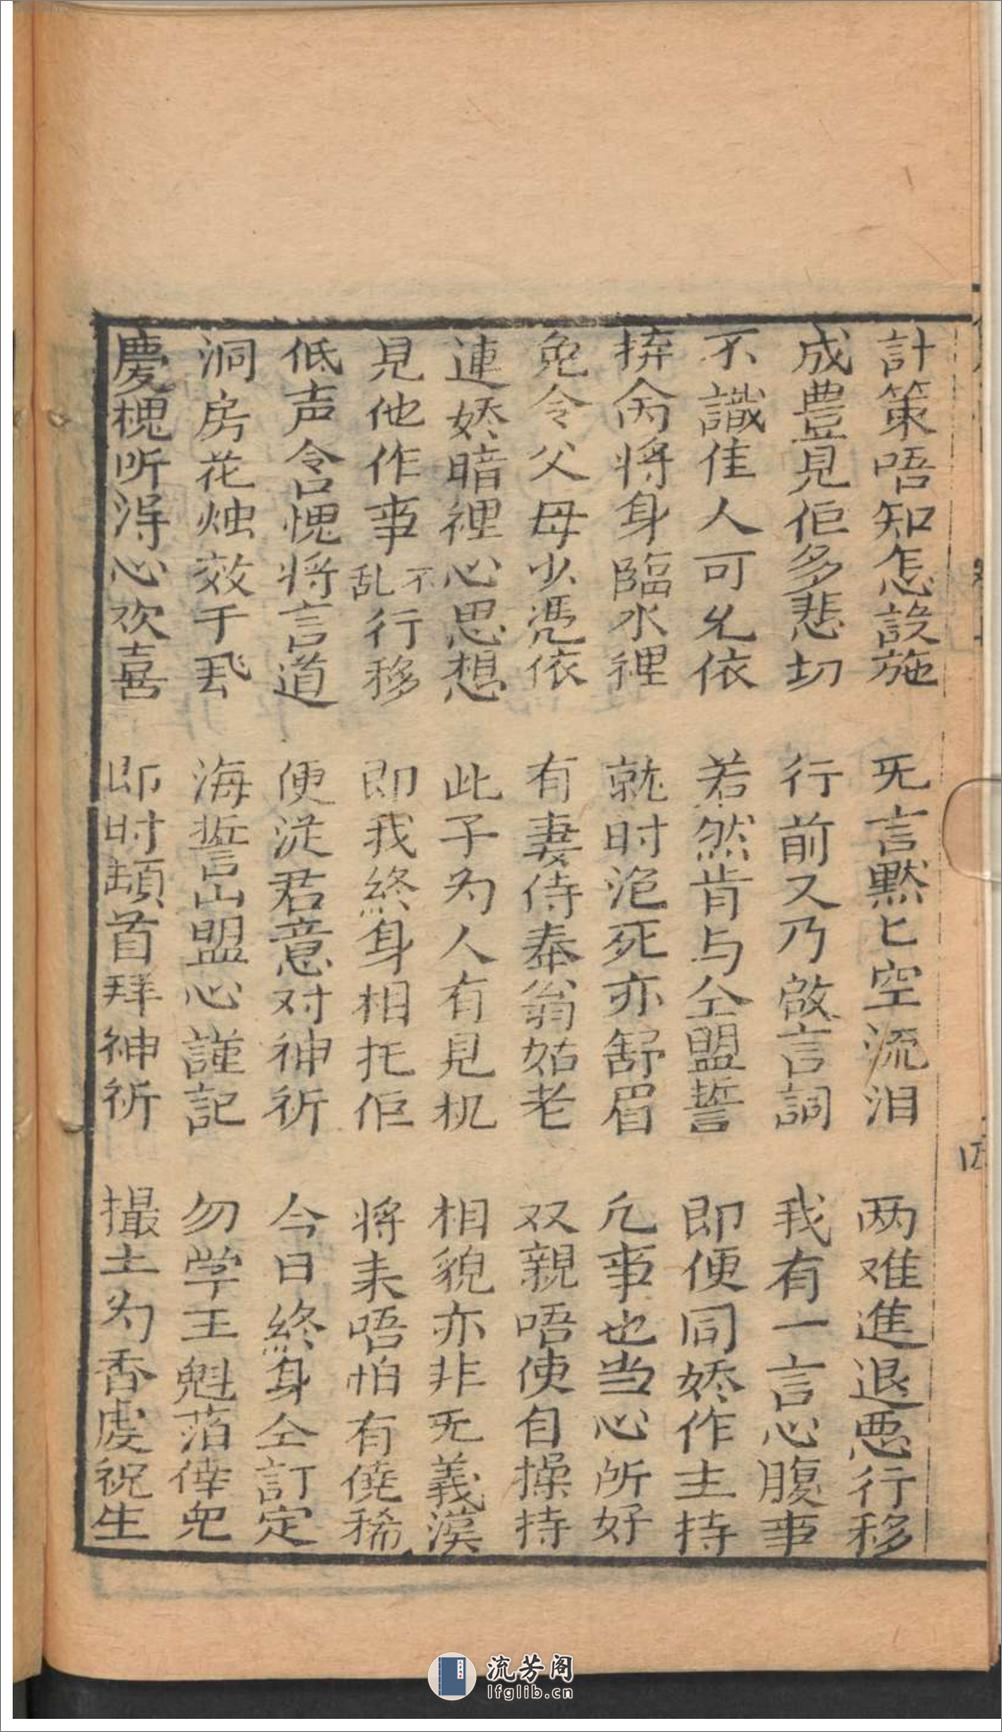 計策唔知怎設施 旡言默匕空流泪 两难進退悪行移
成豊見佢多悲切 行前又乃啟言詞 我有一言心腹事
不識佳人可允依 若然肯与仝盟誓 即便同娇作主持
拚命将身臨水裡 就时浥死亦舒眉 凢事也当心所好
免令父母少憑依 有妻侍奉翁姑老 双親唔使自操持
連娇暗裡心思想 此子為人有見机 相貌亦非旡義漢
見他作事不乱行移 即我終身相托佢 将来唔怕有僥稀
低声含愧将言道 便従君意对神祈 今日終身仝訂定
洞房花烛效于飛 海誓山盟心謹記 勿学王魁薄倖児
慶槐听淂心欢喜 即时頓首拜神祈 撮土为香虔祝生
四
流芳阁
lfglib.cn